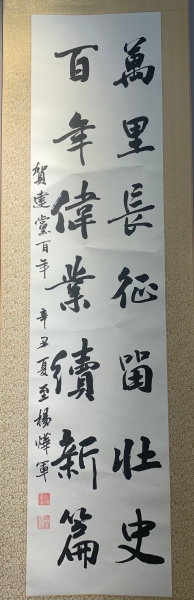 萬里長征留壯史
百年偉業續新篇
賀建黨百年 辛丑夏至楊燁軍